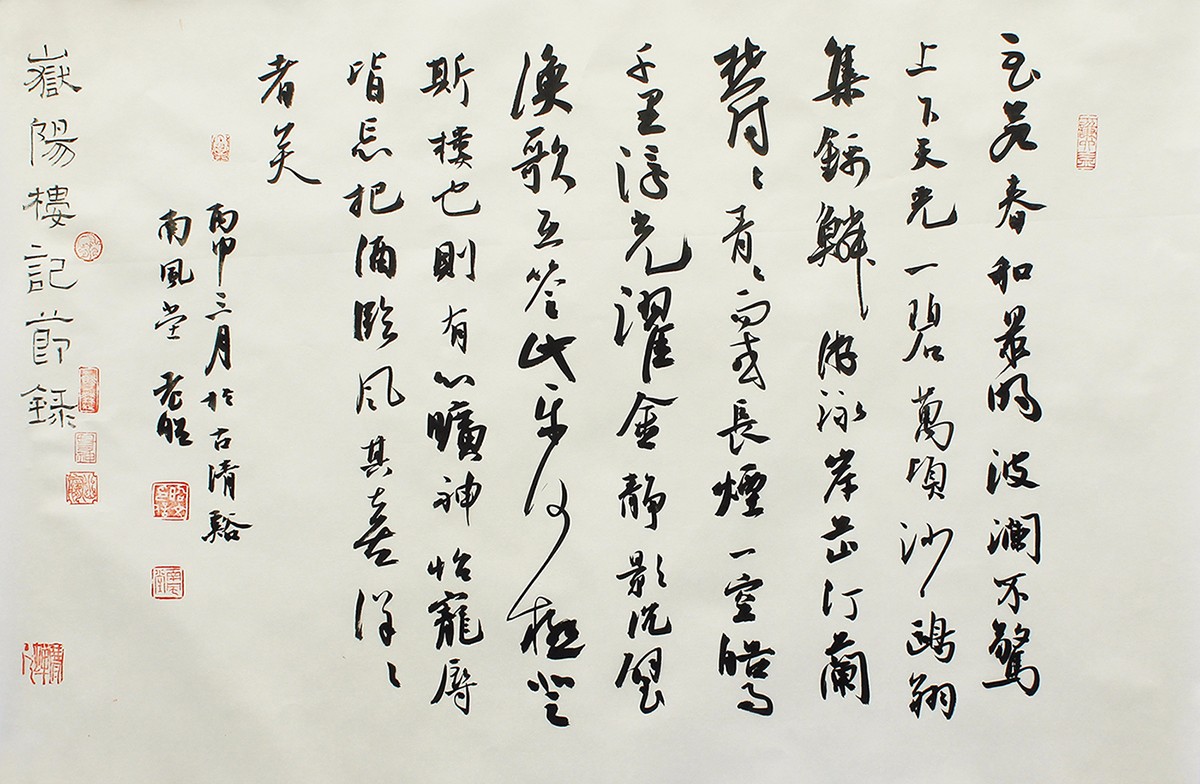 至若春和景明波瀾不驚
上下天光一碧萬頃沙鷗翔
集錦鱗游泳岸芷汀蘭
鬱〻青〻而或長煙一空皓月
千里浮光濯金靜影沉璧
漁歌互答此樂何極登
斯樓也則有心曠神怡寵辱
皆忘把酒臨風其喜洋〻
者矣
丙申三月於古清谿
南風堂 老
嶽陽樓記節錄